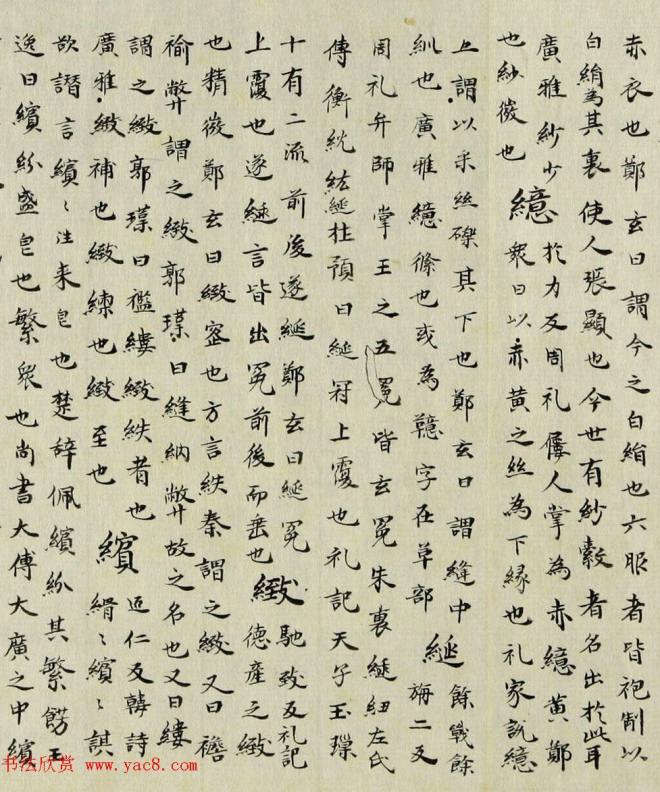 赤衣也鄭玄曰謂今之白絹也六服者皆袍制以
白絹為其裏使人張顯也今世有紗縠者名出於此耳
廣雅紗少 繶 於力反周礼屨人掌為赤繶黃鄭
也紗微也 衆曰以赤黃之絲為下緣也礼家說繶
上謂以采絲礫其下也鄭玄曰謂縫中
紃也廣雅繶絛也或為䪰字在草部 綖 餘戰餘旃二反
周礼弁師掌王之五冕皆玄冕朱裏綖紐左氏
傳衡紞紘綖杜預曰綖冠上覆也礼記天子玉璪
十有二流前後遂綖鄭玄曰綖冕
上覆也遂綖言皆出冕前後而垂也 緻 馳致反礼記德產之緻
也精微鄭玄曰緻密也方言紩秦謂之緻又曰襜
褕弊謂之緻郭璞曰縫納弊故之名也又曰縷
謂之緻郭璞曰襤縷緻紩者也
廣雅緻補也緻練也緻至也 繽 匹仁反韓詩縃〻繽〻諆
欲譖言繽〻注来皃也楚辞佩繽紛其繁餝王
逸曰繽紛盛皃也繁衆也尚書大傳大廣之中繽
书法欣赏 www.yac8.com